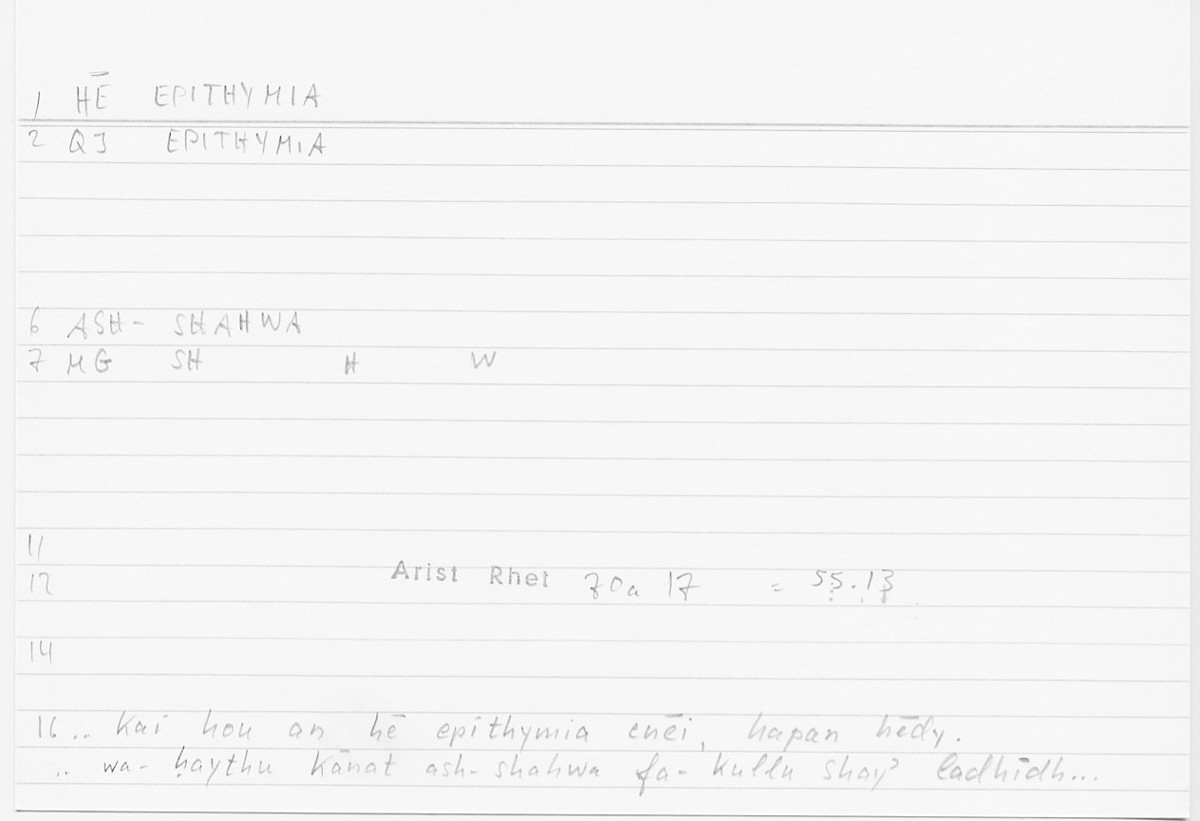 1 HĒ EPITHYMIA
2 QJ EPITHYMIA
6 ASH- SHAHWA
7 MG SH H W
11
12 Arist Rhet 70a 17 = 55.13
14
16 .. kai hou an hē epithymia enēi, hapan hēdy.
.. wa- ḥaythu kānat ash-shahwa fa- kullu shayʾ ladhīdh...